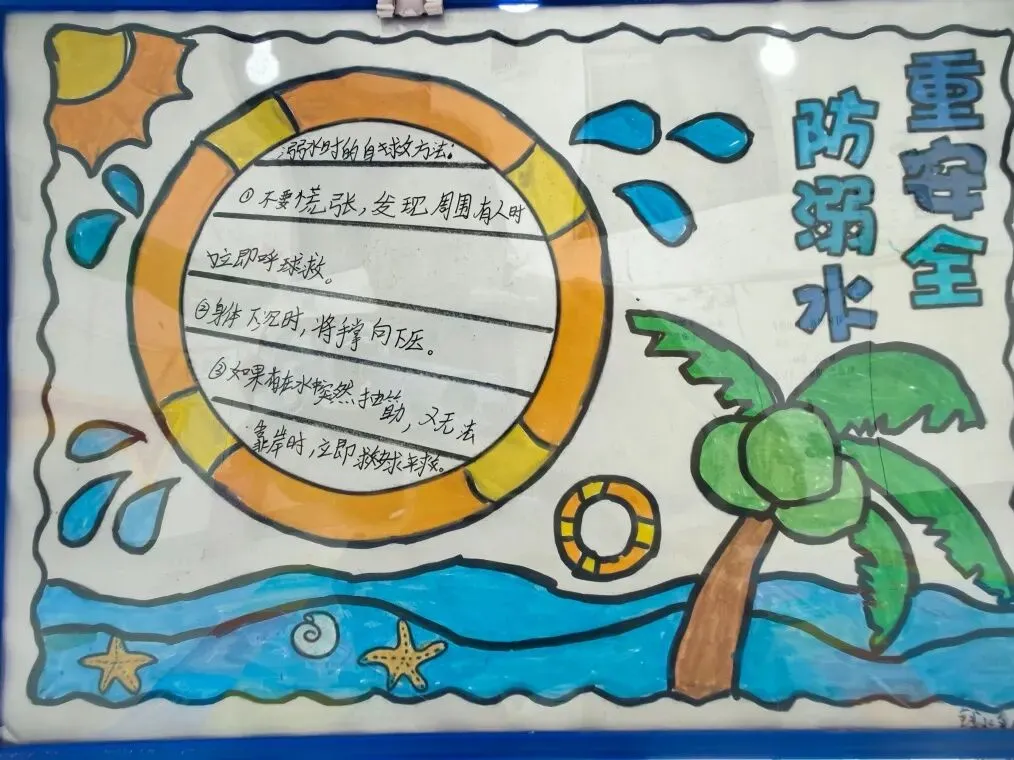 重安全
防溺水
溺水时的自救方法:
①不要慌张,发现周围有人时
立即呼救。
②身体下沉时,将手掌向下压。
③如果在水突然抽筋,又无法
靠岸时,立即求救。